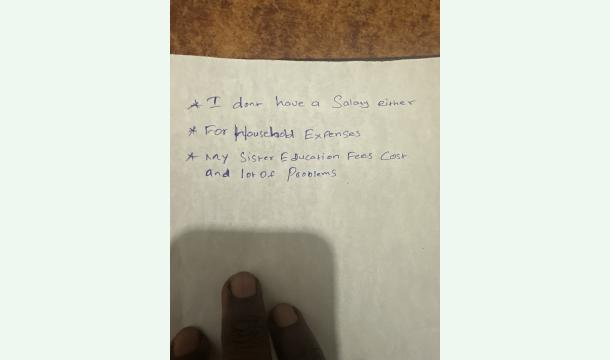 * I dont have a Salary either
* For Household Expenses
* My Sister Education Fees Cost
and lot of Problems